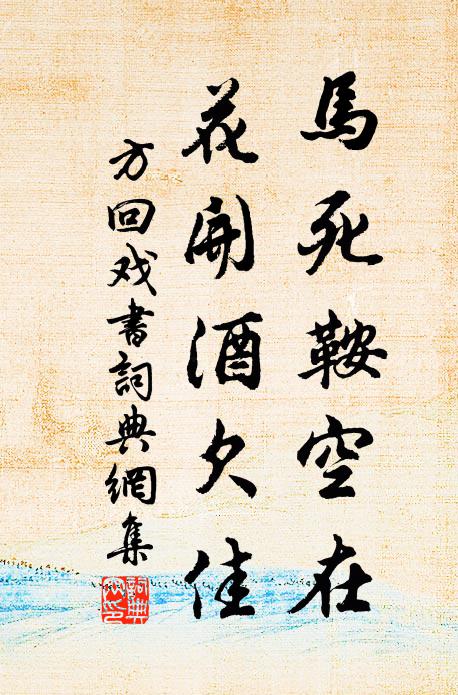 馬死鞍空在
花開酒欠佳
方回戏書詞典網集
詞典